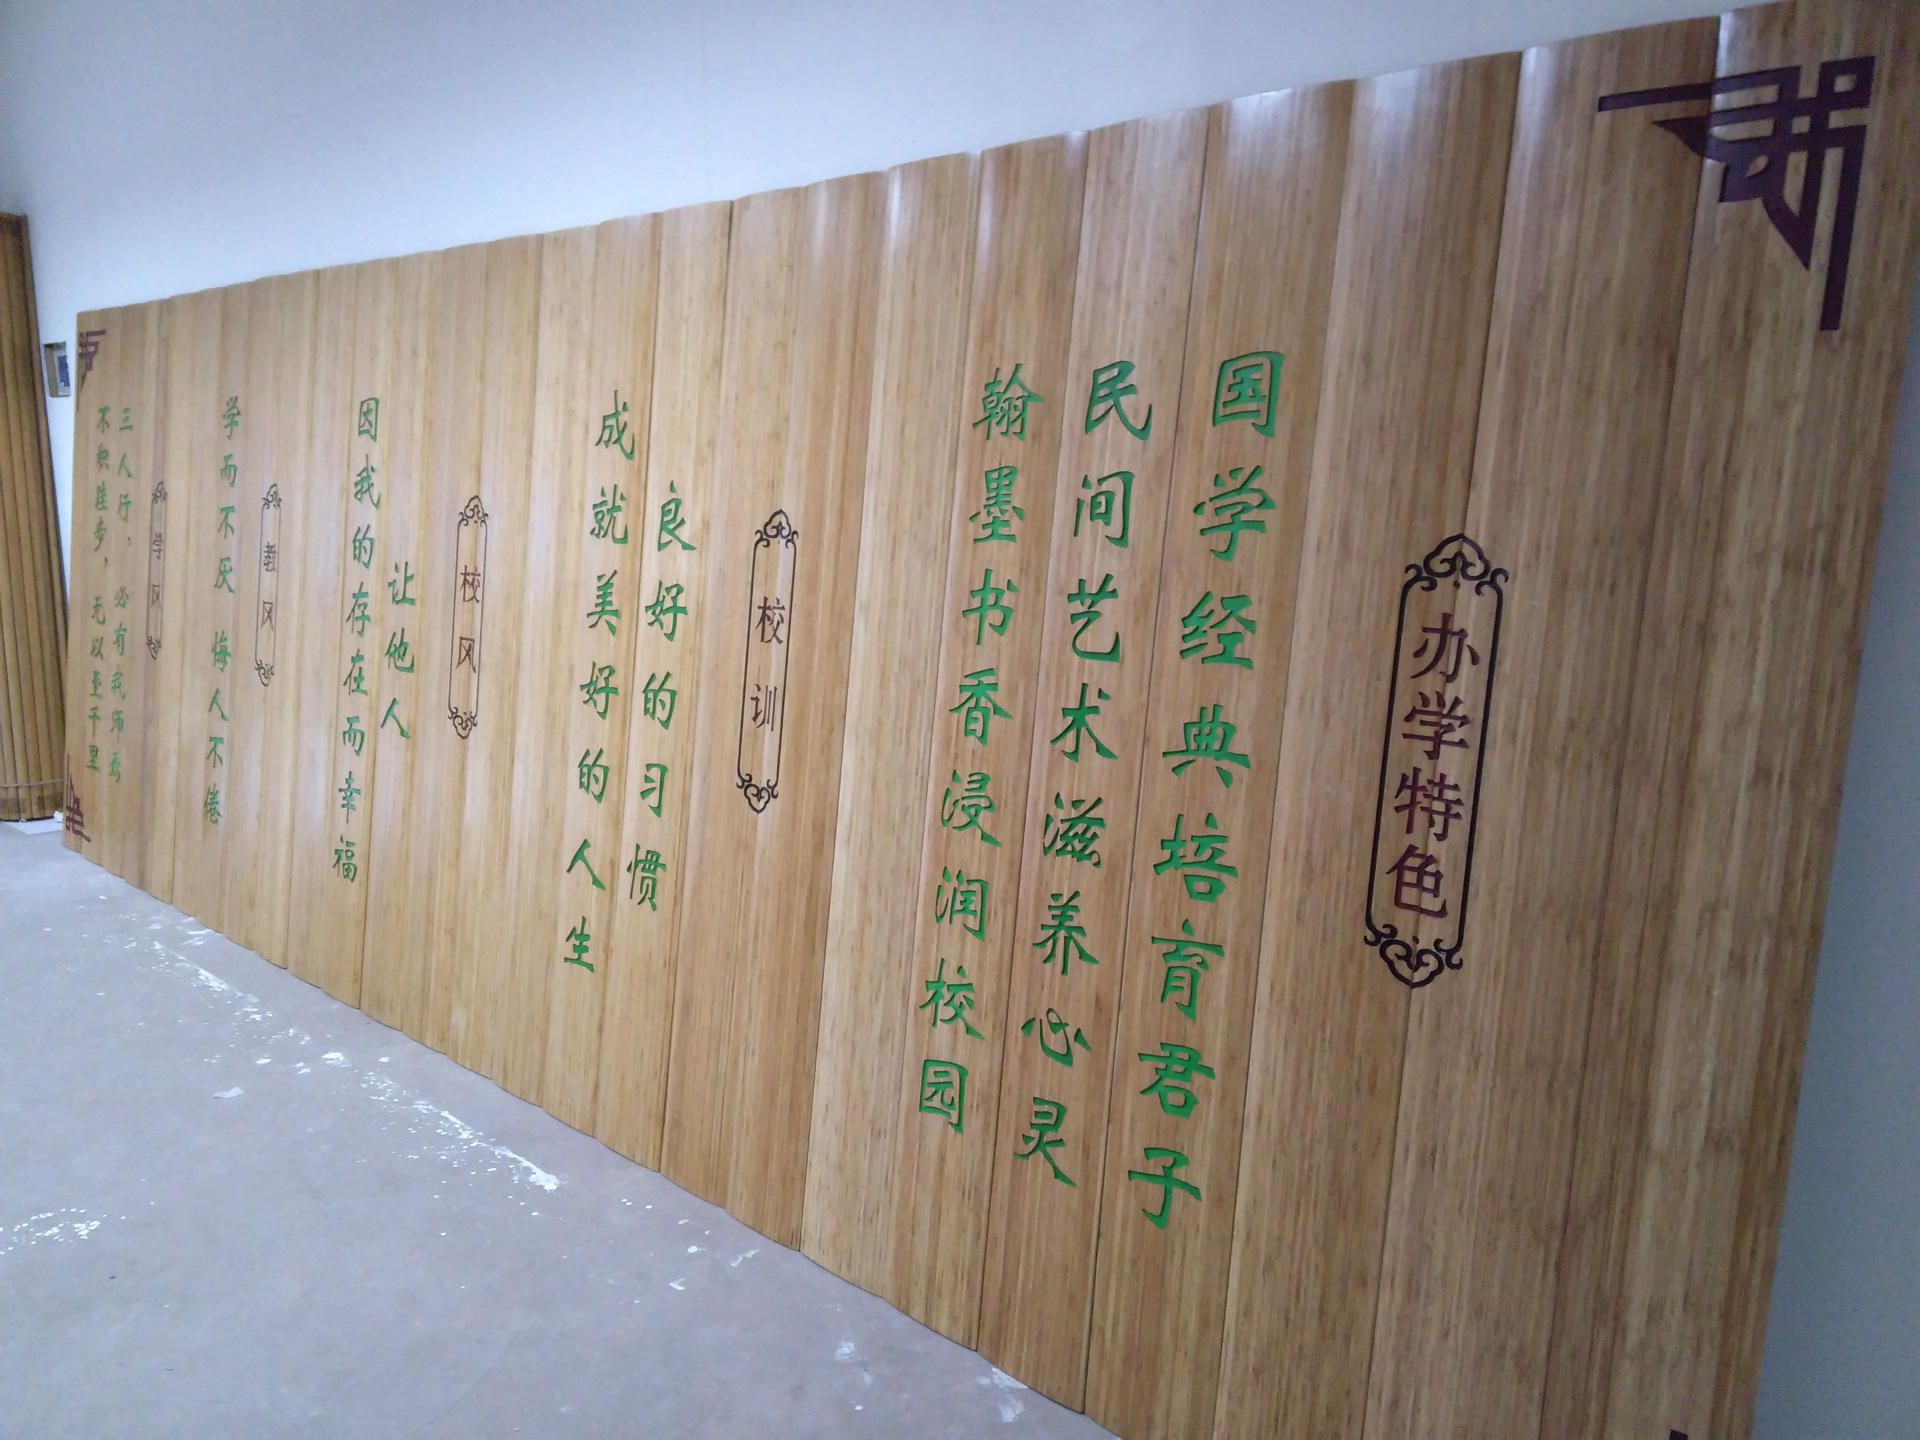 办学特色
国学经典培育君子
民间艺术滋养心灵
翰墨书香浸润校园
校训
良好的习惯
成就美好的人生
校风
让他人
因我的存在而幸福
教风
学而不厌 悔人不倦
学风
三人行，必有我师焉
不积跬步，无以至千里